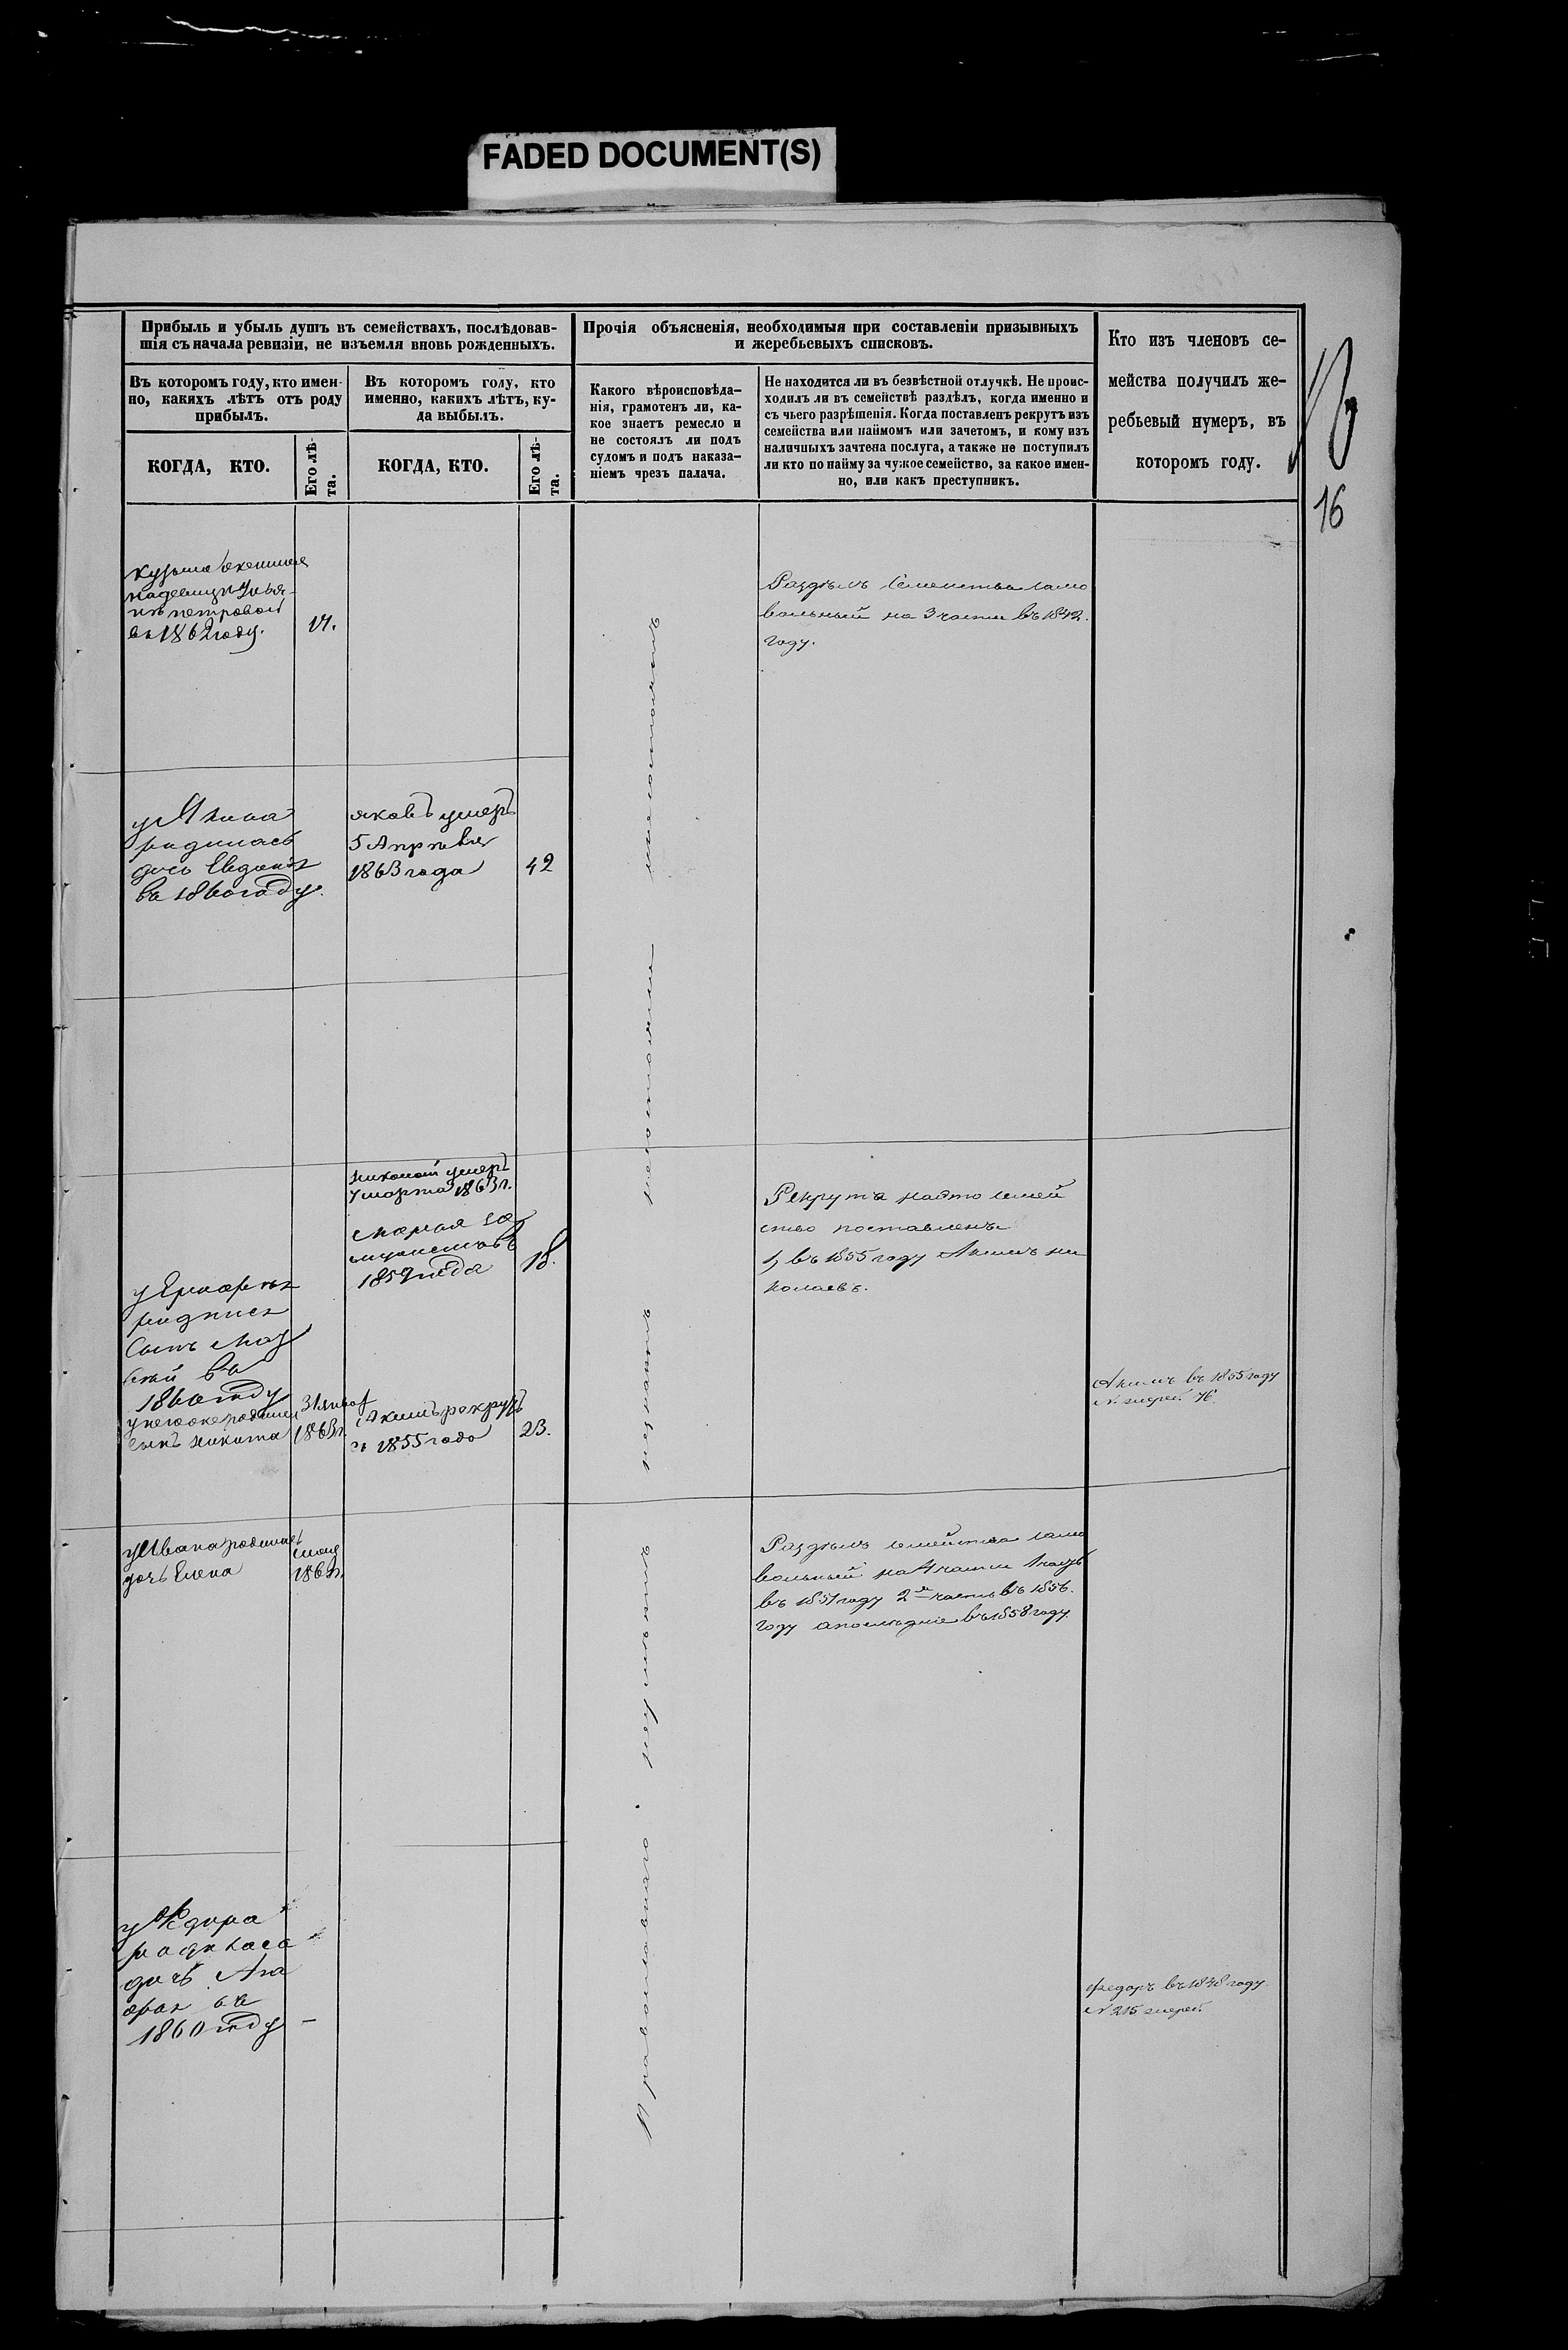 FADED DOCUMENT(S)
Прибыль и убыль душъ въ семействахъ, послѣдовав-
шія съ начала ревизіи, не изъемля вновь рожденныхъ.
Прочія объясненія, необходимыя при составленіи призывныхъ
и жеребьевыхъ списковъ.
Кто изъ членовъ се-
мейства получилъ же-
ребьевый нумеръ, въ
которомъ году.
Въ которомъ году, кто имен-
но, какихъ лѣтъ отъ роду
прибылъ.
Въ которомъ году, кто
именно, какихъ лѣтъ, ку-
да выбылъ.
Какого вѣроисповѣда-
нія, грамотенъ ли, ка-
кое знаетъ ремесло и
не состоялъ ли подъ
судомъ и подъ наказа-
ніемъ чрезъ палача.
Не находится ли въ безвѣстной отлучкѣ. Не проис-
ходилъ ли въ семействѣ раздѣлъ, когда именно и
съ чьего разрѣшенія. Когда поставленъ рекрутъ изъ
семейства или наймомъ или зачетомъ, и кому изъ
наличныхъ зачтена послуга, а также не поступилъ
ли кто по найму за чужое семейство, за какое имен-
но, или какъ преступникъ.
КОГДА, КТО.
Его лѣ-
та.
КОГДА, КТО.
Его лѣ-
та.
16
Кузьма женился
на девицы Улья-
не петровой
въ 1862 году.
17.
Раздѣлъ Семейства само
вольный на 3 части въ 1842.
году.
у Якима
родилась
дочь Евдокія
въ 1860 году.
яковъ умеръ
5 Апрѣля
1863 года
42
николай умеръ
7 марта 1863 г.
марья за
мужемъ въ
1859 года
18.
Рекрута на это семей
ство поставленъ
1, въ 1855 году Акимъ ни
колаевъ.
родился
Сынъ
въ
1860 году
у него же родился
сынъ никита
31 январ
1863 г.
Акимъ рекрутъ
съ 1855 года
23.
Акимъ въ 1855 году
№ жереб. 76.
у Ивана родилась
дочь Елена
186
Раздѣлъ семейства само
вольный на 4 части 1 часть
въ 1851 году 2я часть въ 1856.
году а последніе въ 1858 году.
у Федора
родилась
дочь Ага
фья въ
1860 году
—
федоръ въ 1848 году.
№ 215 жереб.
Православнаго . неграмотны